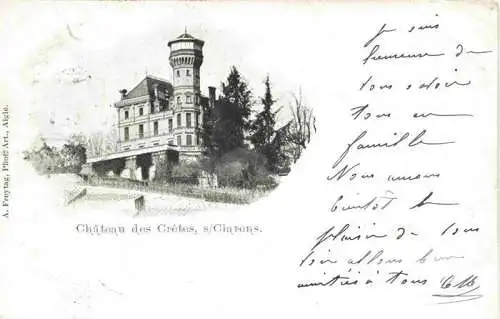 A. Freytag, Phot. Art., Aigle.
Château des Crêtes, s/Clarens.
Je suis
heureuse de
vous savoir
tous en
famille
Nous aurons
bientôt le
plaisir de vous
voir allons
amitiés à tous